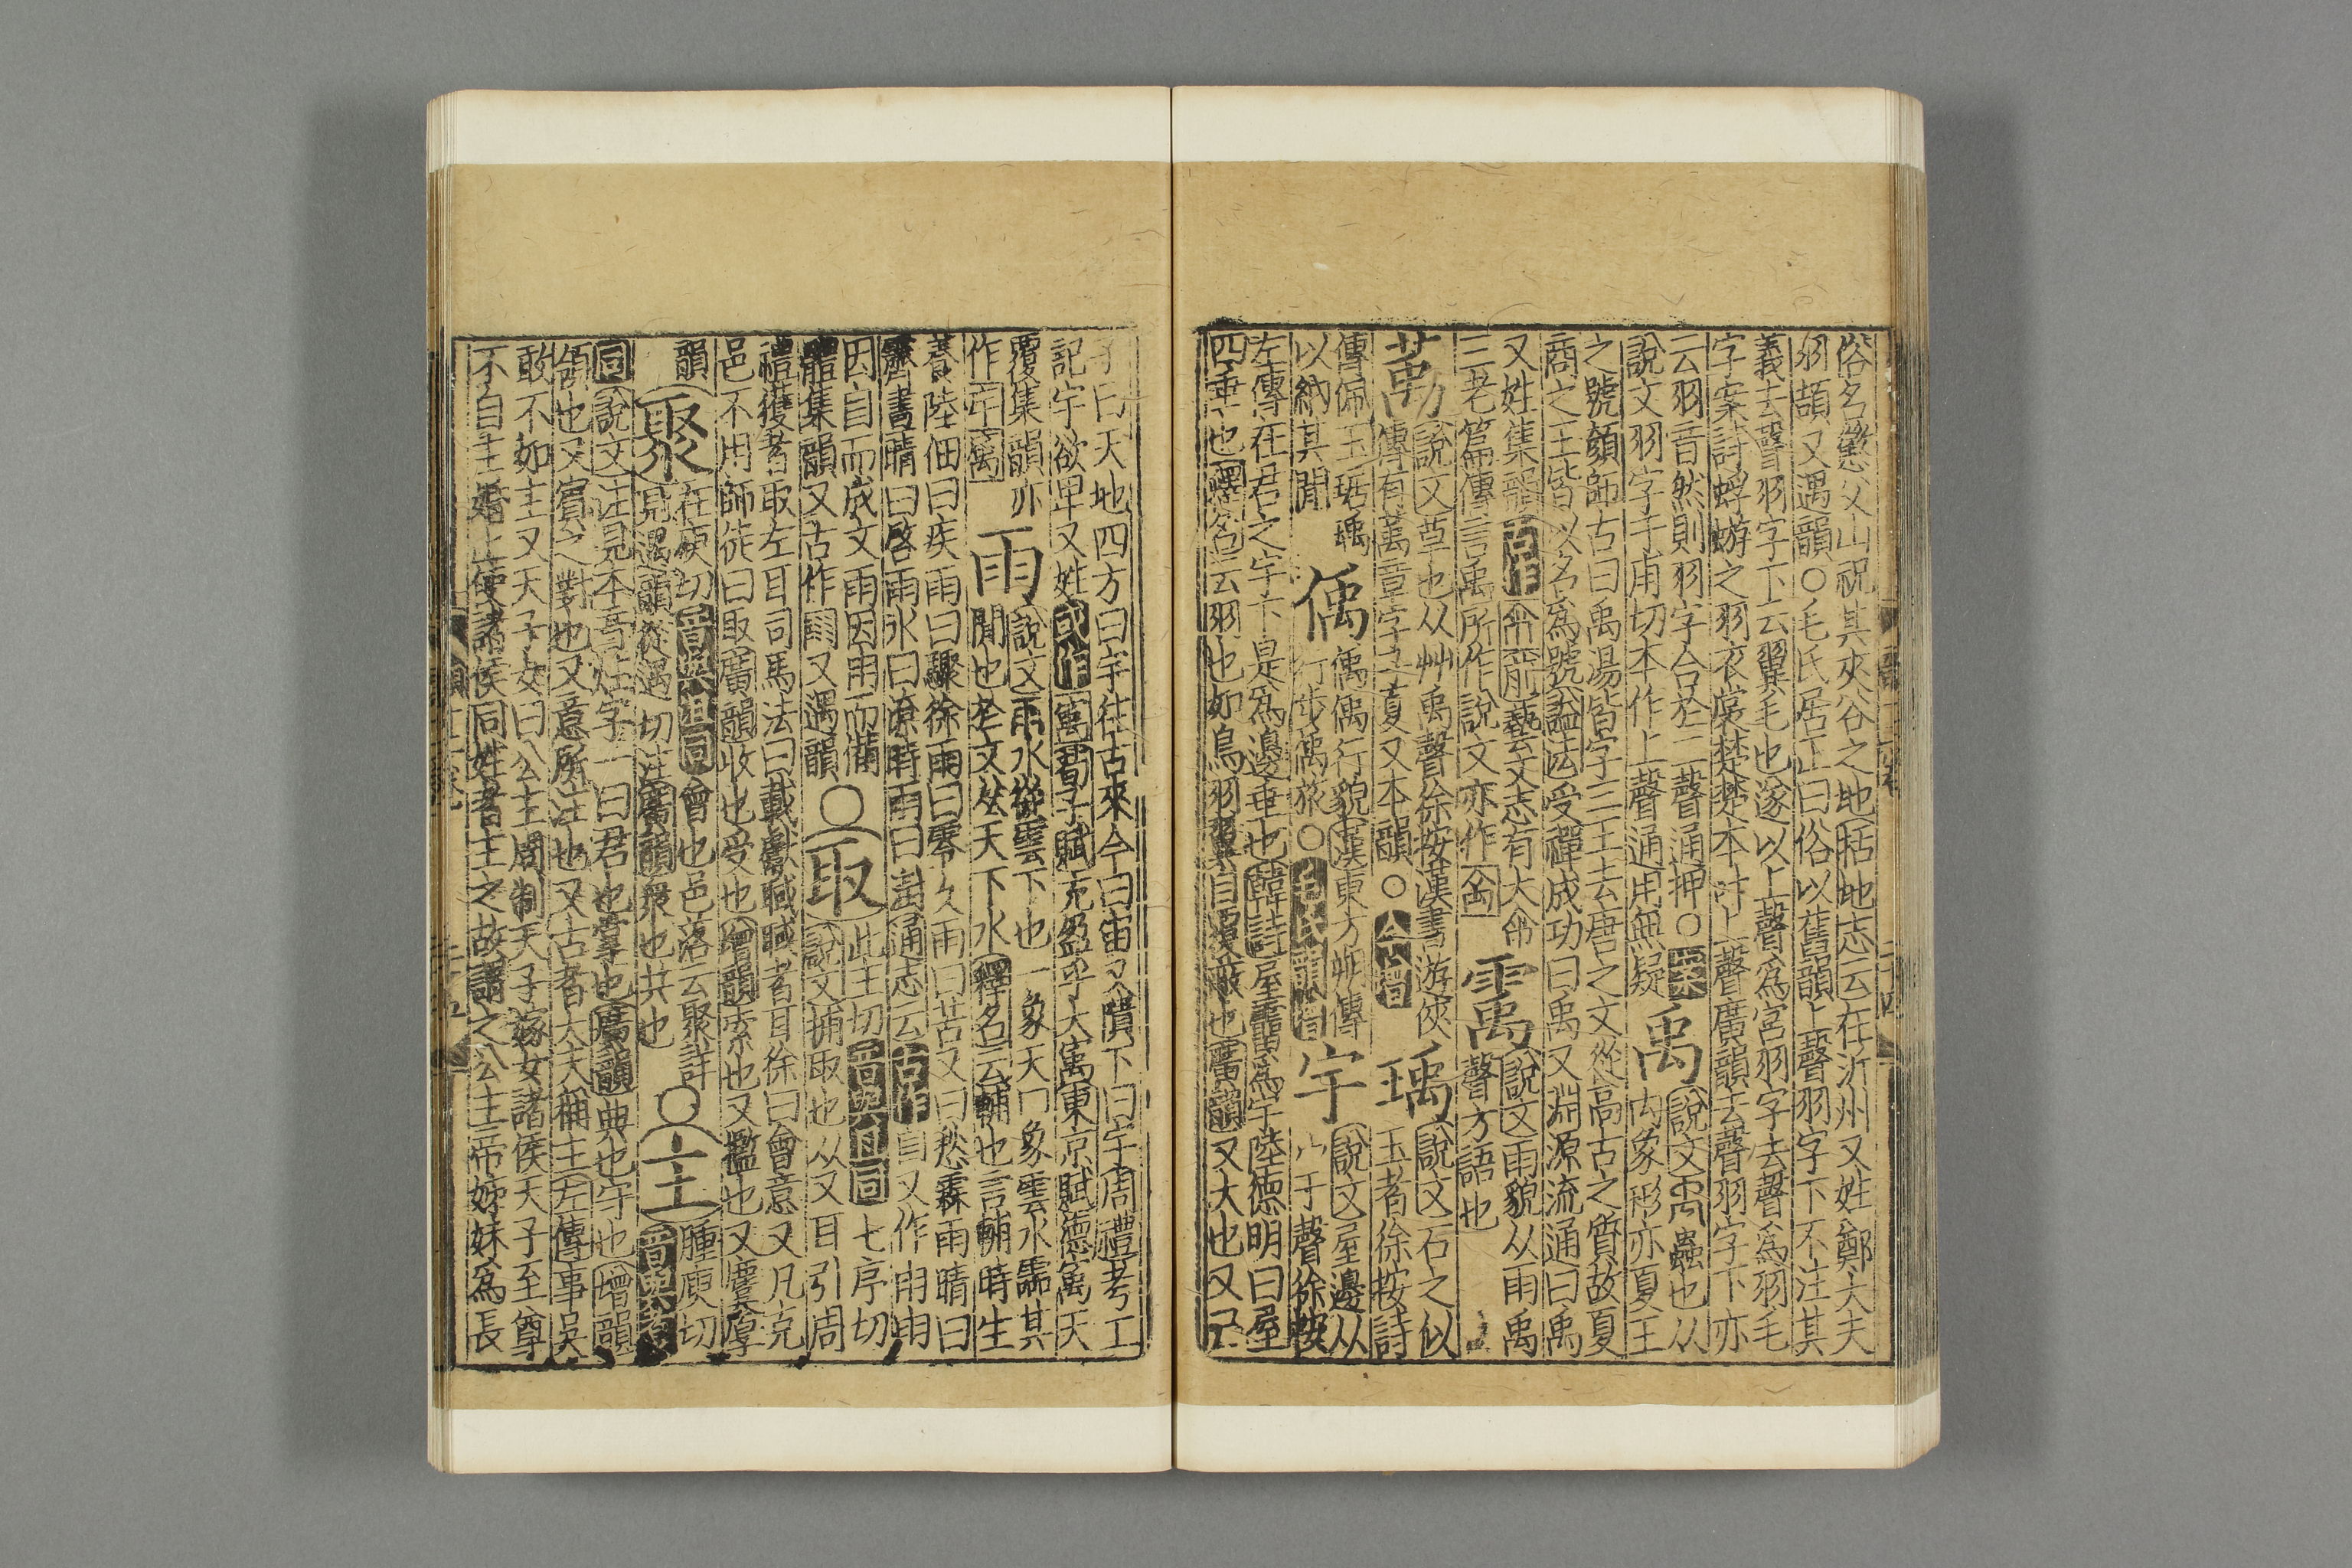 俗名懲父山祝其夾谷之地括地志云在沂州又姓鄭大夫
羽頡又遇韻○毛氏居正曰俗以舊韻上聲羽字下不注其
義去聲羽字下云翼毛也遂以上聲爲宮羽字去聲爲羽毛
字案詩蜉蝣之羽衣裳楚楚本叶上聲廣韻去聲羽字下亦
云羽音然則羽字合於二聲通押○案
說文羽字于甫切本作上聲通用無疑
禹
說文蟲也从
内象形亦夏王
之號顔師古曰禹湯皆字三王去唐之文從高古之質故夏
商之王皆以名爲號謚法受禪成功曰禹又淵源流通曰禹
又姓集韻古作𠇚𠇚藝文志有大𠇚
三老篇傳言禹所作說文亦作
䨞
說文雨貌从雨禹
聲方語也
萭
說文草也从艸禹聲徐按漢書游俠
傳有萬章字子夏又本韻○今增
瑀
說文石之似
玉者徐按詩
傳佩玉琚瑀
以納其閒
偊
偊偊行貌漢東方朔傳
行步偊旅○毛氏韻增
宇
說文屋邊从
宀于聲徐按
左傳在君之宇下是爲邊垂也韓詩屋霤爲宇陸德明曰屋
四垂也釋名云羽也如鳥羽翼自覆蔽也廣韻又大也又
子曰天地四方曰宇往古來今曰宙又隤下曰宇周禮考工
記宇欲卑又姓或作㝢荀子賦充盈乎大㝢東京賦德㝢天
覆集韻亦
作㝢
雨
說文雨水從雲下也一象天冂象雲水霝其
閒也老文从天下水釋名云輔也言輔時生
養陸佃曰疾雨曰驟徐雨曰零久雨曰苦又曰愁霖雨晴曰
霽書晴曰啓雨水曰潦時雨曰澍通志云古作自又作
因自而成文雨因用而備
體集韻又古作又遇韻
○
取
此主切音與且同七序切
說文捕取也从又耳引周
禮獲者取左耳司馬法曰載獻聝聝者耳徐曰會意又凡克
邑不用師徒曰取廣韻收也受也增韻索也又攬也又麌厚
韻
聚
在庾切音與咀同會也邑落云聚詳
見遇韻從遇切注廣韻衆也共也
○
主
腫庾切
音與煮
同說文注見本音炷字一曰君也掌也廣韻典也守也增韻
領也又賓之對也又意所注也又古者大夫稱主左傳事吴
敢不如主又天子女曰公主周制天子嫁女諸侯天子至尊
不自主婚必使諸侯同姓者主之故謂之公主帝姊妹爲長